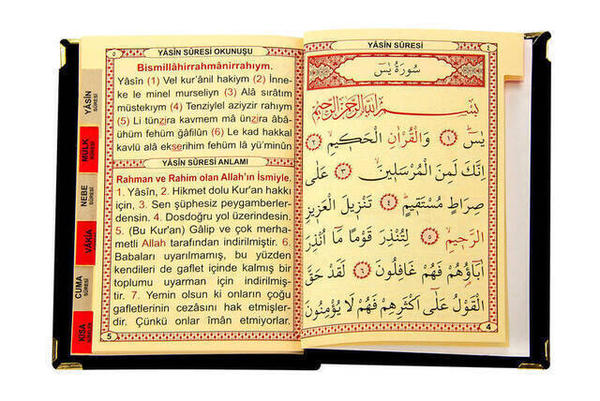 ٤
YÂSİN SÛRESİ
سُورَةُ يٰسٓ
بِسْمِ اللّٰهِ الرَّحْمٰنِ الرَّحِيمِ
يٰسٓ ﴿١﴾ وَالْقُرْاٰنِ الْحَكِيمِ ﴿٢﴾
اِنَّكَ لَمِنَ الْمُرْسَلِينَ ﴿٣﴾ عَلٰى
صِرَاطٍ مُسْتَقِيمٍ ﴿٤﴾ تَنْزِيلَ الْعَزِيزِ
الرَّحِيمِ ﴿٥﴾ لِتُنْذِرَ قَوْمًا مَٓا اُنْذِرَ
اٰبَٓاؤُهُمْ فَهُمْ غَافِلُونَ ﴿٦﴾ لَقَدْ حَقَّ
الْقَوْلُ عَلٰٓى اَكْثَرِهِمْ فَهُمْ لَا يُؤْمِنُونَ
4
٥
YÂSİN SÛRESİ OKUNUŞU
Bismillâhirrahmânirrahıym.
Yâsîn (1) Vel kur'ânil hakiym (2) İnne-
ke le minel murseliyn (3) Alâ sıratım
müstekıym (4) Tenziylel aziyzir rahıym
(5) Li tünzira kavmem mâ ünzira âbâ-
ühüm fehüm ğâfilûn (6) Le kad hakkal
kavlü alâ ekserihim fehüm lâ yü'minûn
YÂSİN SÛRESİ ANLAMI
Rahman ve Rahim olan Allah'ın İsmiyle.
1. Yâsîn, 2. Hikmet dolu Kur'an hakkı
için, 3. Sen şüphesiz peygamberler-
densin. 4. Dosdoğru yol üzerindesin.
5. (Bu Kur'an) Gâlip ve çok merha-
metli Allah tarafından indirilmiştir. 6.
Babaları uyarılmamış, bu yüzden
kendileri de gaflet içinde kalmış bir
toplumu uyarman için indirilmiş-
tir. 7. Yemin olsun ki onların çoğu
gafletlerinin cezasını hak etmişler-
dir. Çünkü onlar îmân etmiyorlar.
5
YÂSİN
SÛRESİ
MÜLK
SÛRESİ
NEBE
SÛRESİ
VÂKIA
SÛRESİ
CUMA
SÛRESİ
KISA
SÛRELER